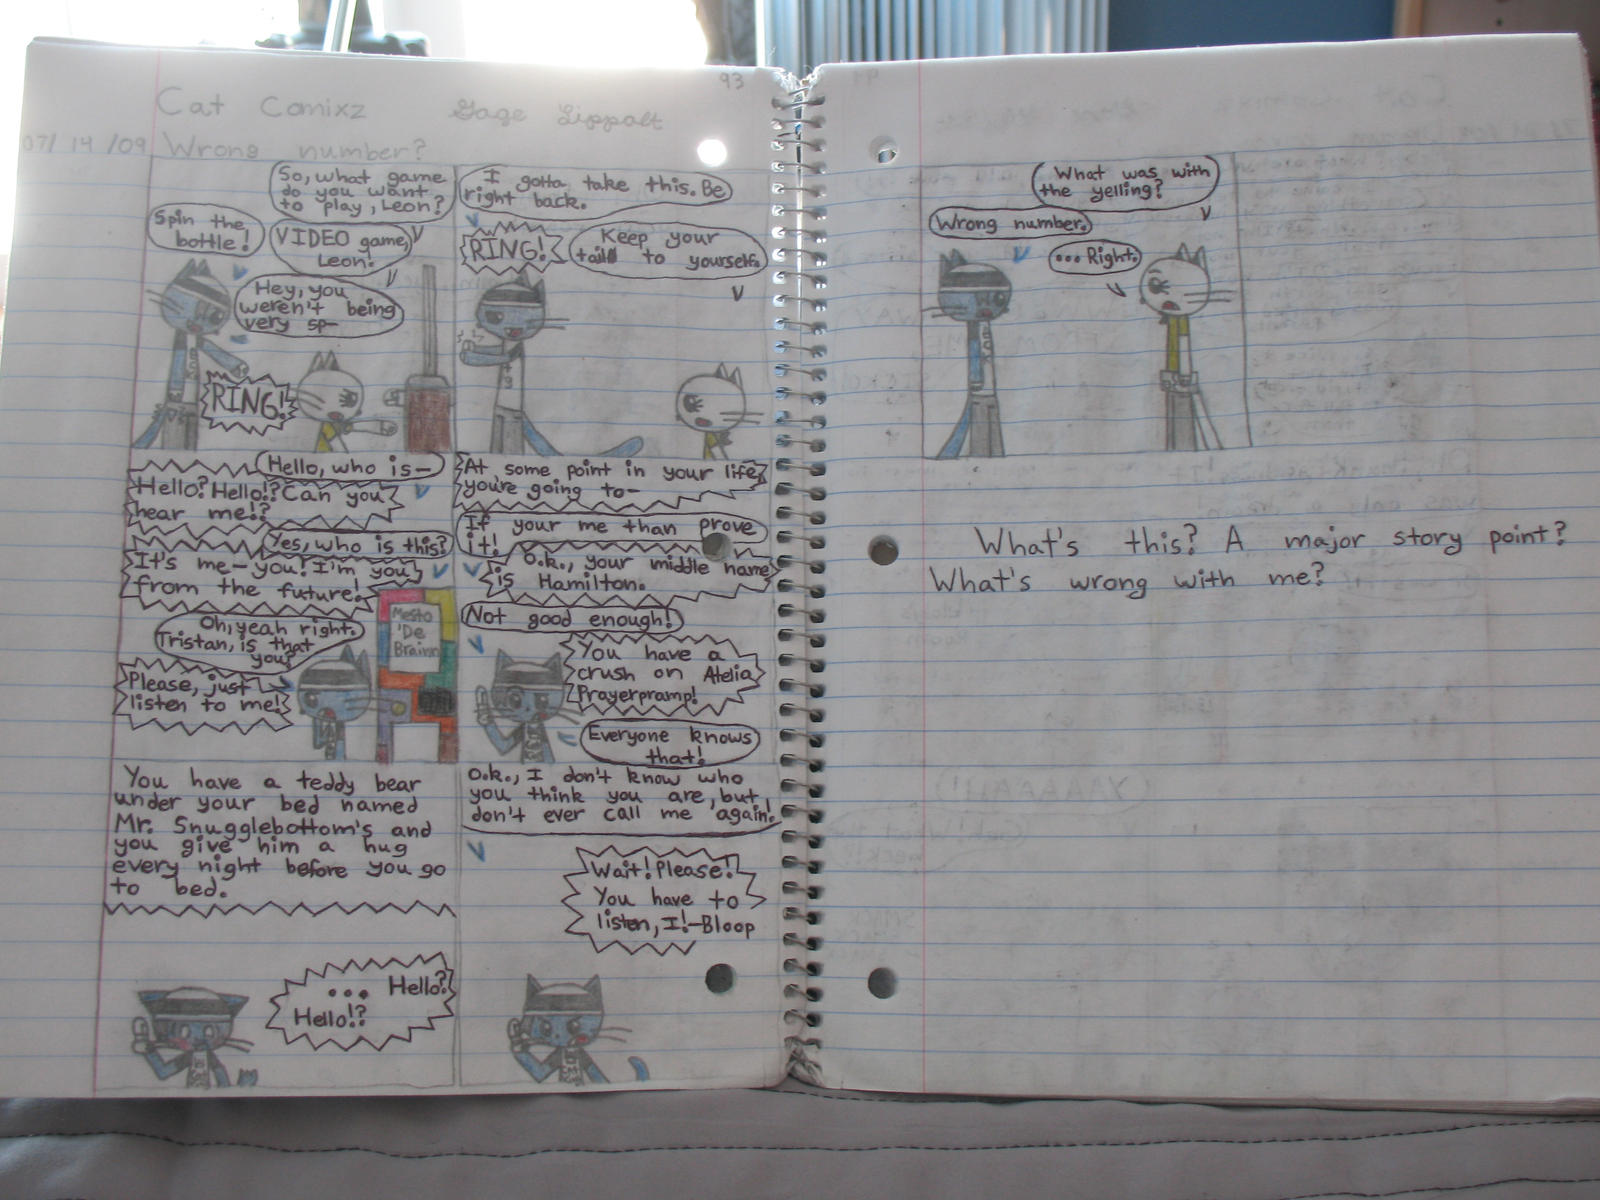 93
Cat Comixz Gage Lippolt
07/14/09 Wrong number?
So, what game
do you want
to play, Leon?
Spin the
bottle!
VIDEO game,
Leon.
Hey, you
weren't being
very sp-
RING!
I gotta take this. Be
right back.
RING!
Keep your
tail to yourself.
Hello, who is-
Hello? Hello!? Can you
hear me!?
Yes, who is this?
It's me-you! I'm you
from the future!
Oh, yeah right.
Tristan, is that
you?
Please, just
listen to me!
Mesto
'De
Brainn
At some point in your life,
you're going to-
If your me than prove
it!
O.k., your middle name
is Hamilton.
Not good enough!
You have a
crush on Atelia
Prayerpramp!
Everyone knows
that!
You have a teddy bear
under your bed named
Mr. Snugglebottom's and
you give him a hug
every night before you go
to bed.
... Hello?
Hello!?
O.k., I don't know who
you think you are, but
don't ever call me again!
Wait! Please!
You have to
listen, I!-Bloop
What was with
the yelling?
Wrong number.
...Right.
What's this? A major story point?
What's wrong with me?